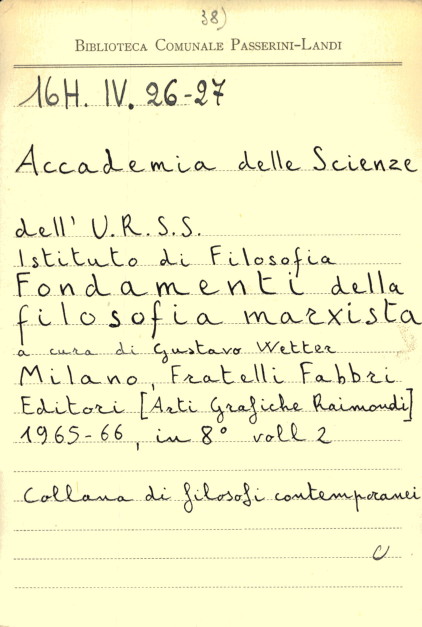 38)
BIBLIOTECA COMUNALE PASSERINI-LANDI
16H. IV. 26-27
Accademia delle Scienze
dell' U.R.S.S.
Istituto di Filosofia
Fondamenti della
filosofia marxista
a cura di Gustavo Wetter
Milano, Fratelli Fabbri
Editori [Arti Grafiche Raimondi]
1965-66, in 8° voll 2
Collana di filosofi contemporanei
C